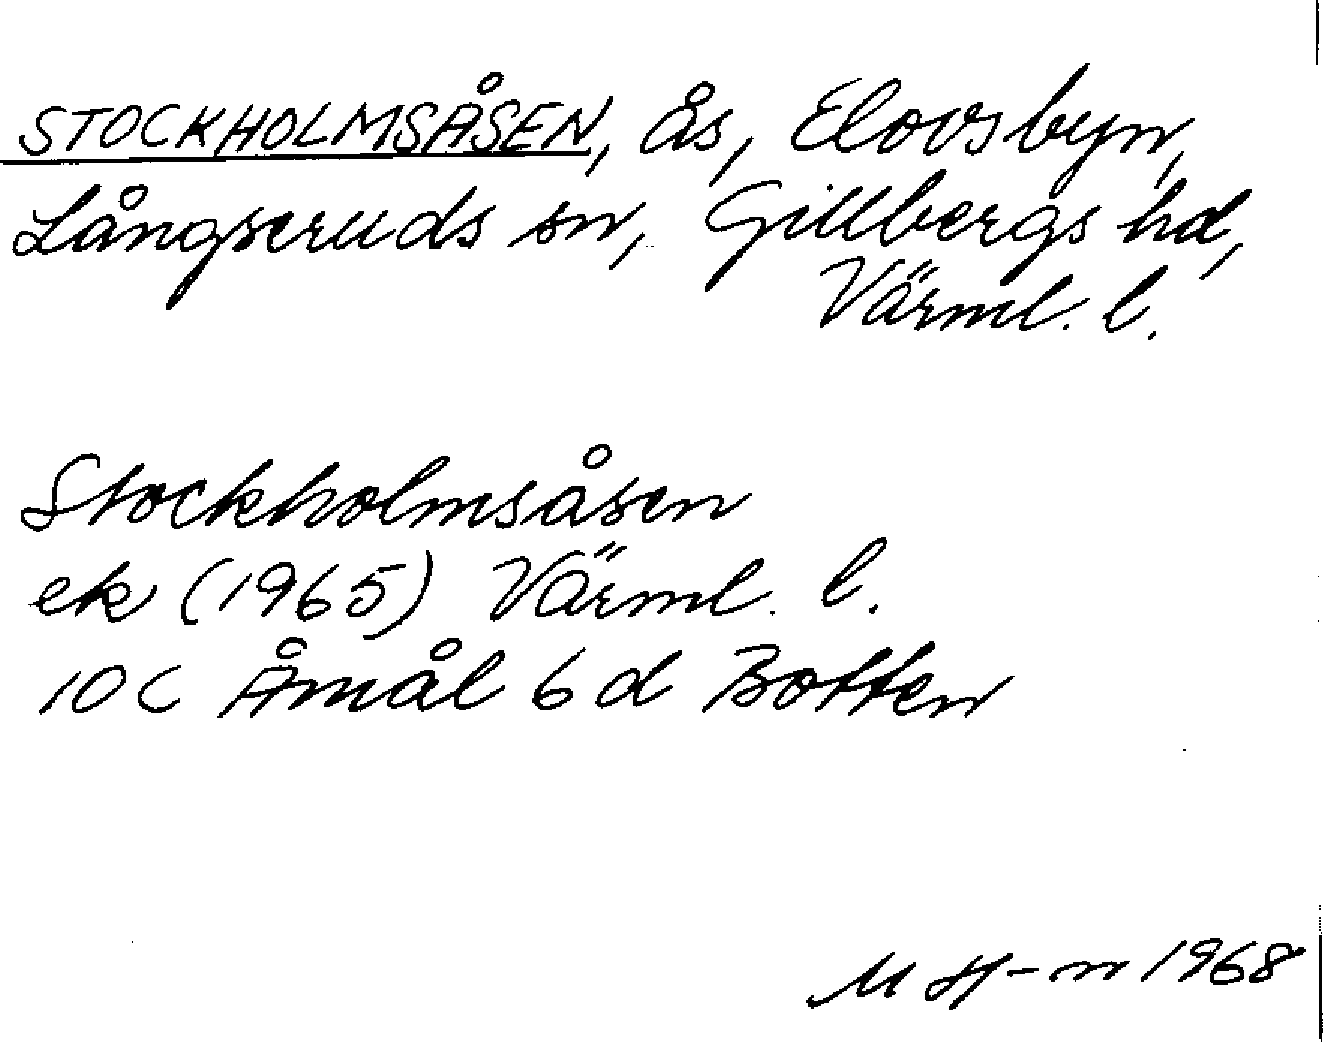 STOCKHOLMSÅSEN, ås, Elovsbyn,
Långseruds sn, Gillbergs hd,
Värml. l.
Stockholmsåsen
ek (1965) Värml. l.
10C Åmål 6d Botten
M H-n 1968